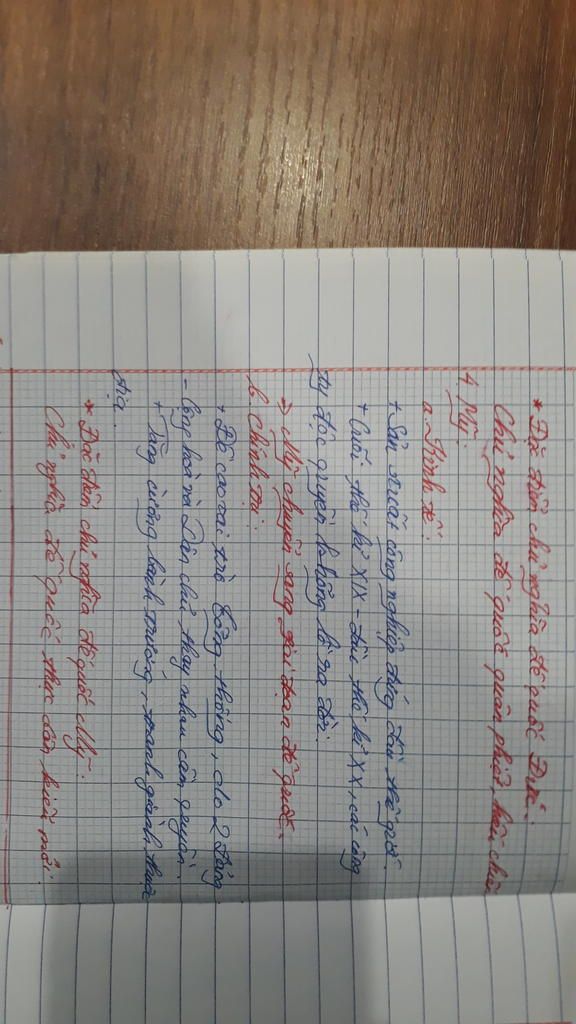 * Đặc điểm chủ nghĩa đế quốc Đức:
Chủ nghĩa đế quốc quân phiệt, hiếu chiến
4. Mỹ:
a. Kinh tế:
+ Sản xuất công nghiệp đứng đầu thế giới.
+ Cuối thế kỉ XIX - đầu thế kỉ XX, các công
ty độc quyền khổng lồ ra đời.
=> Mỹ chuyển sang giai đoạn đế quốc.
b. Chính trị:
+ Đề cao vai trò Tổng thống, do 2 Đảng
- Cộng hoà và Dân chủ thay nhau cầm quyền.
+ Tăng cường bành trướng, tranh giành thuộc
địa.
* Đặc điểm chủ nghĩa đế quốc Mỹ:
Chủ nghĩa đế quốc thực dân kiểu mới.